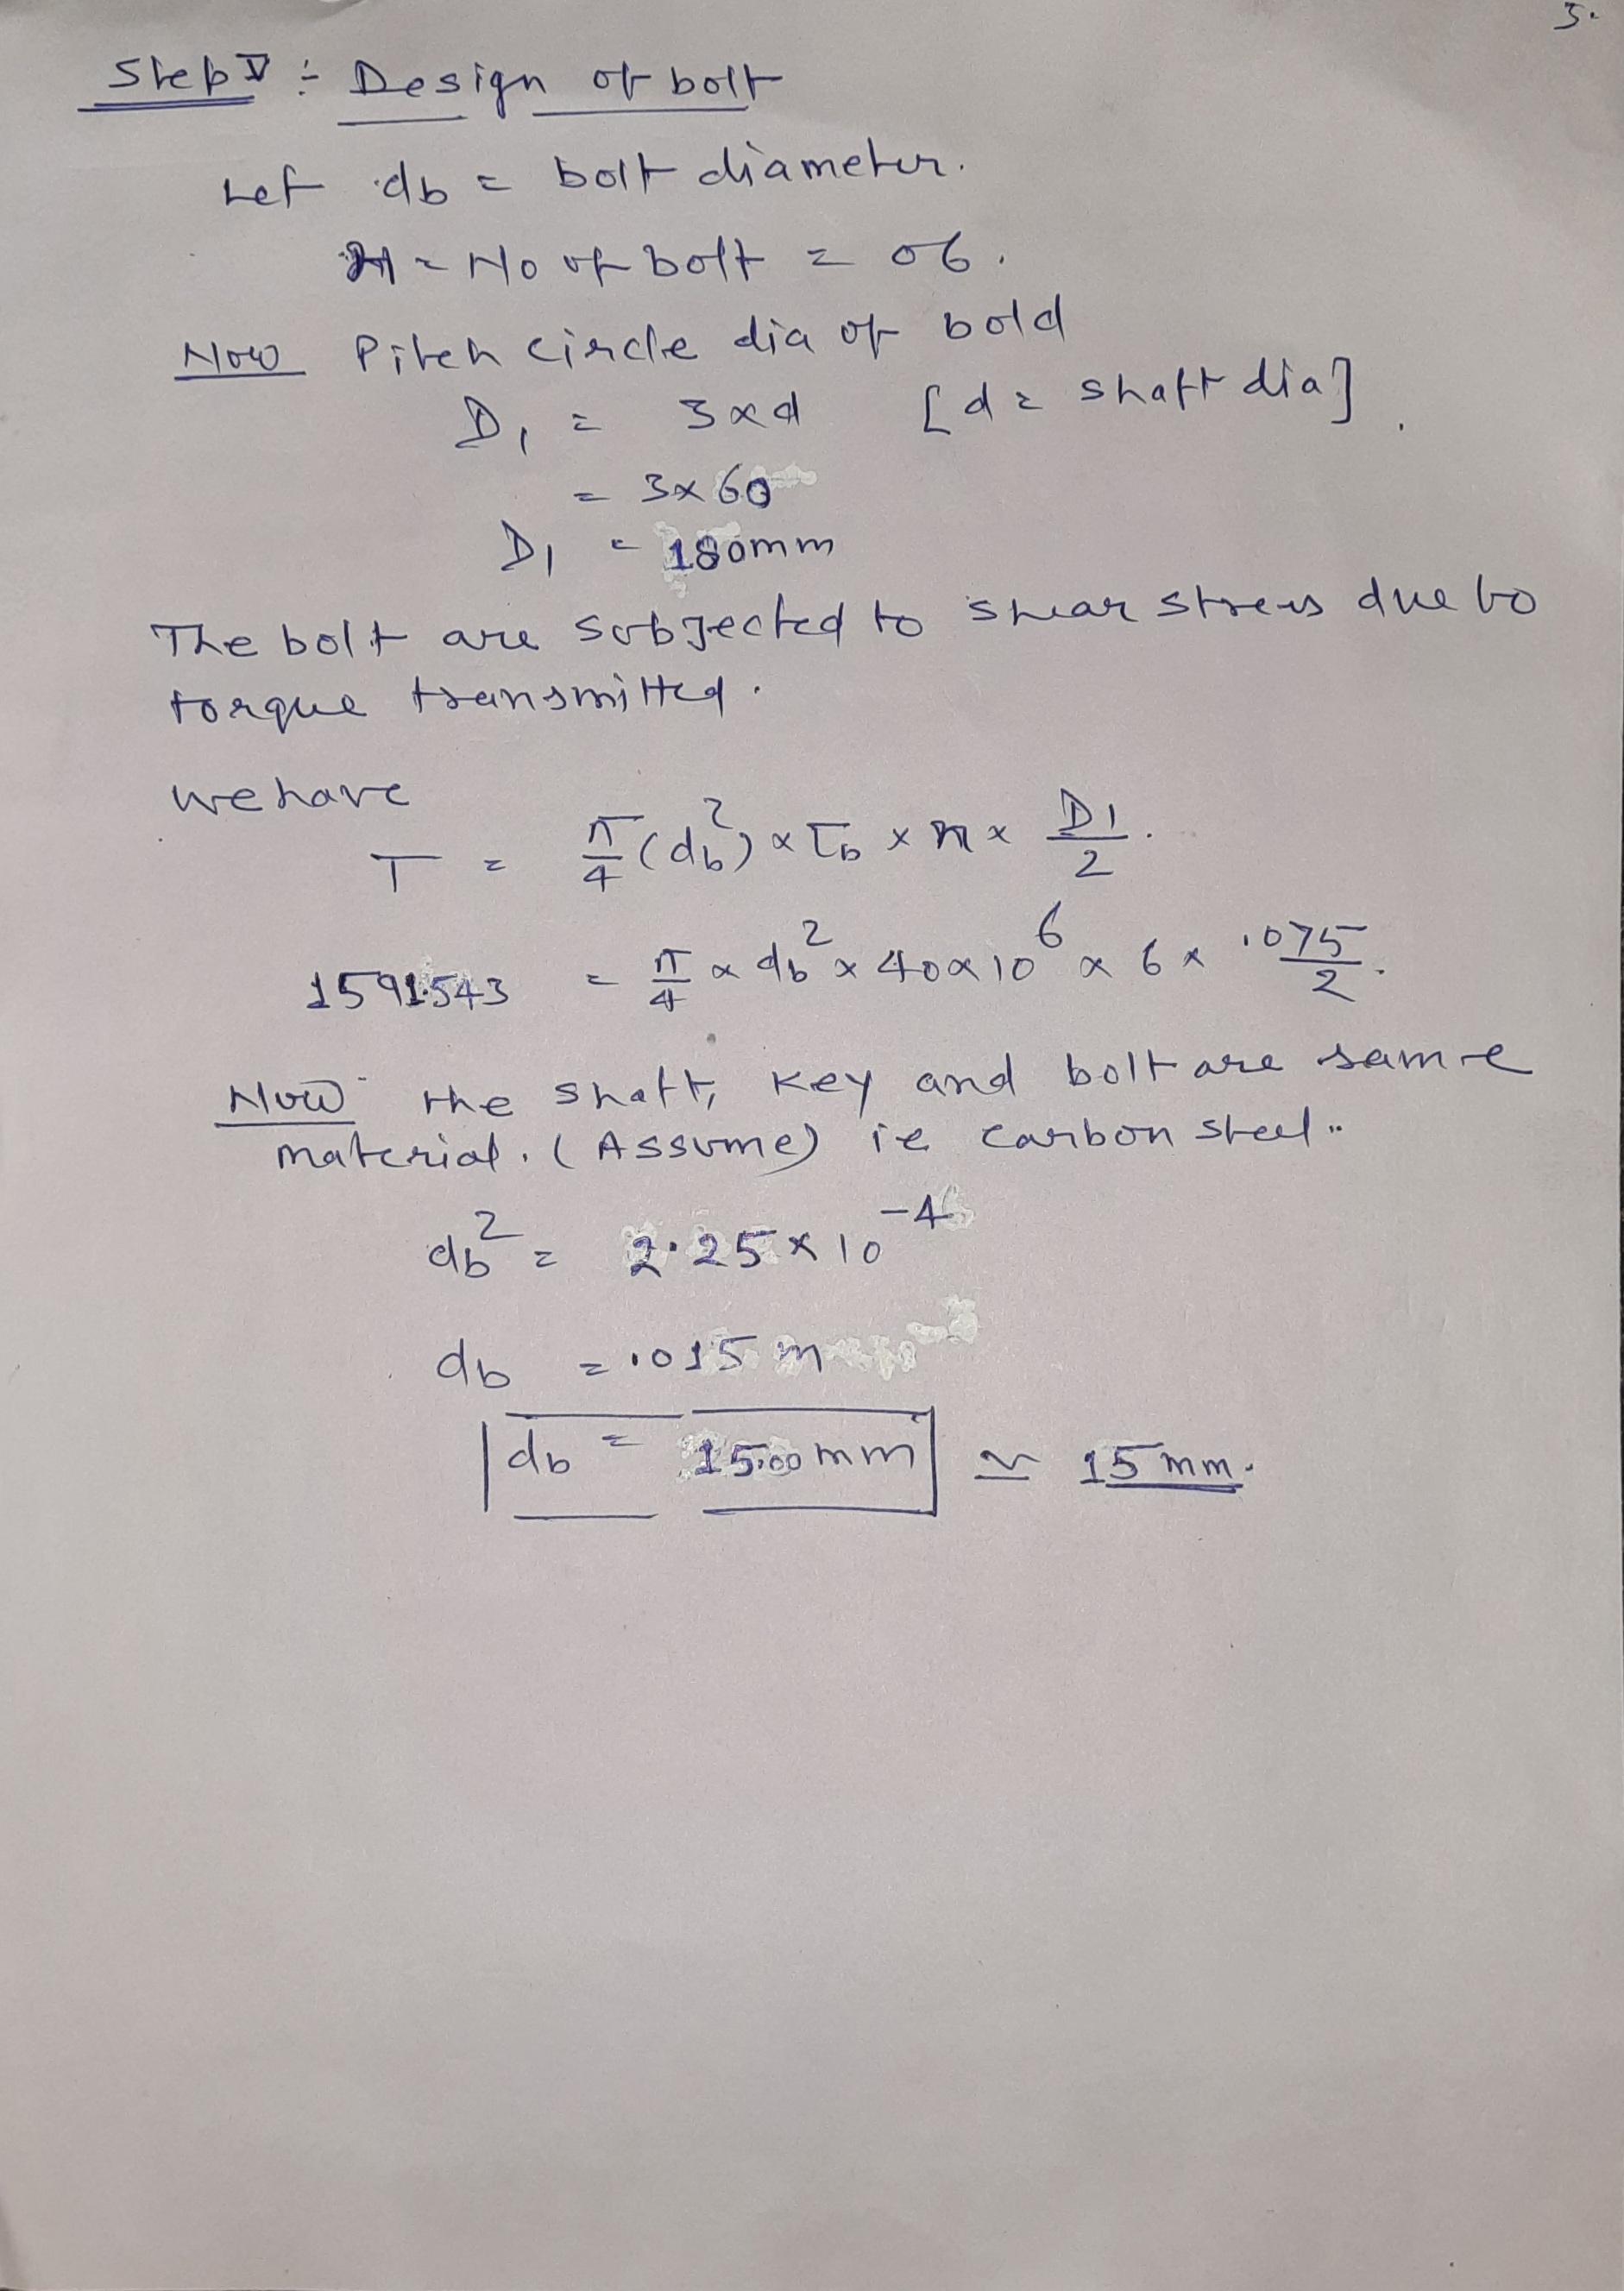 3.
Step V :- Design of bolt
Let db = bolt diameter.
n = No of bolt = 06.
Now Pitch circle dia of bold
D1 = 3xd [d = shaft dia].
= 3x60
D1 = 180mm
The bolt are subjected to shear stress due to
torque transmitted.
we have
T = π/4 (db²) x τb x n x D1/2.
1591.543 = π/4 x db² x 40x10⁶ x 6 x .075/2.
Now the shaft, key and bolt are same
material. (Assume) ie carbon steel..
db² = 2.25 x 10⁻⁴
db = .015 m
db = 15.00 mm ≃ 15 mm.